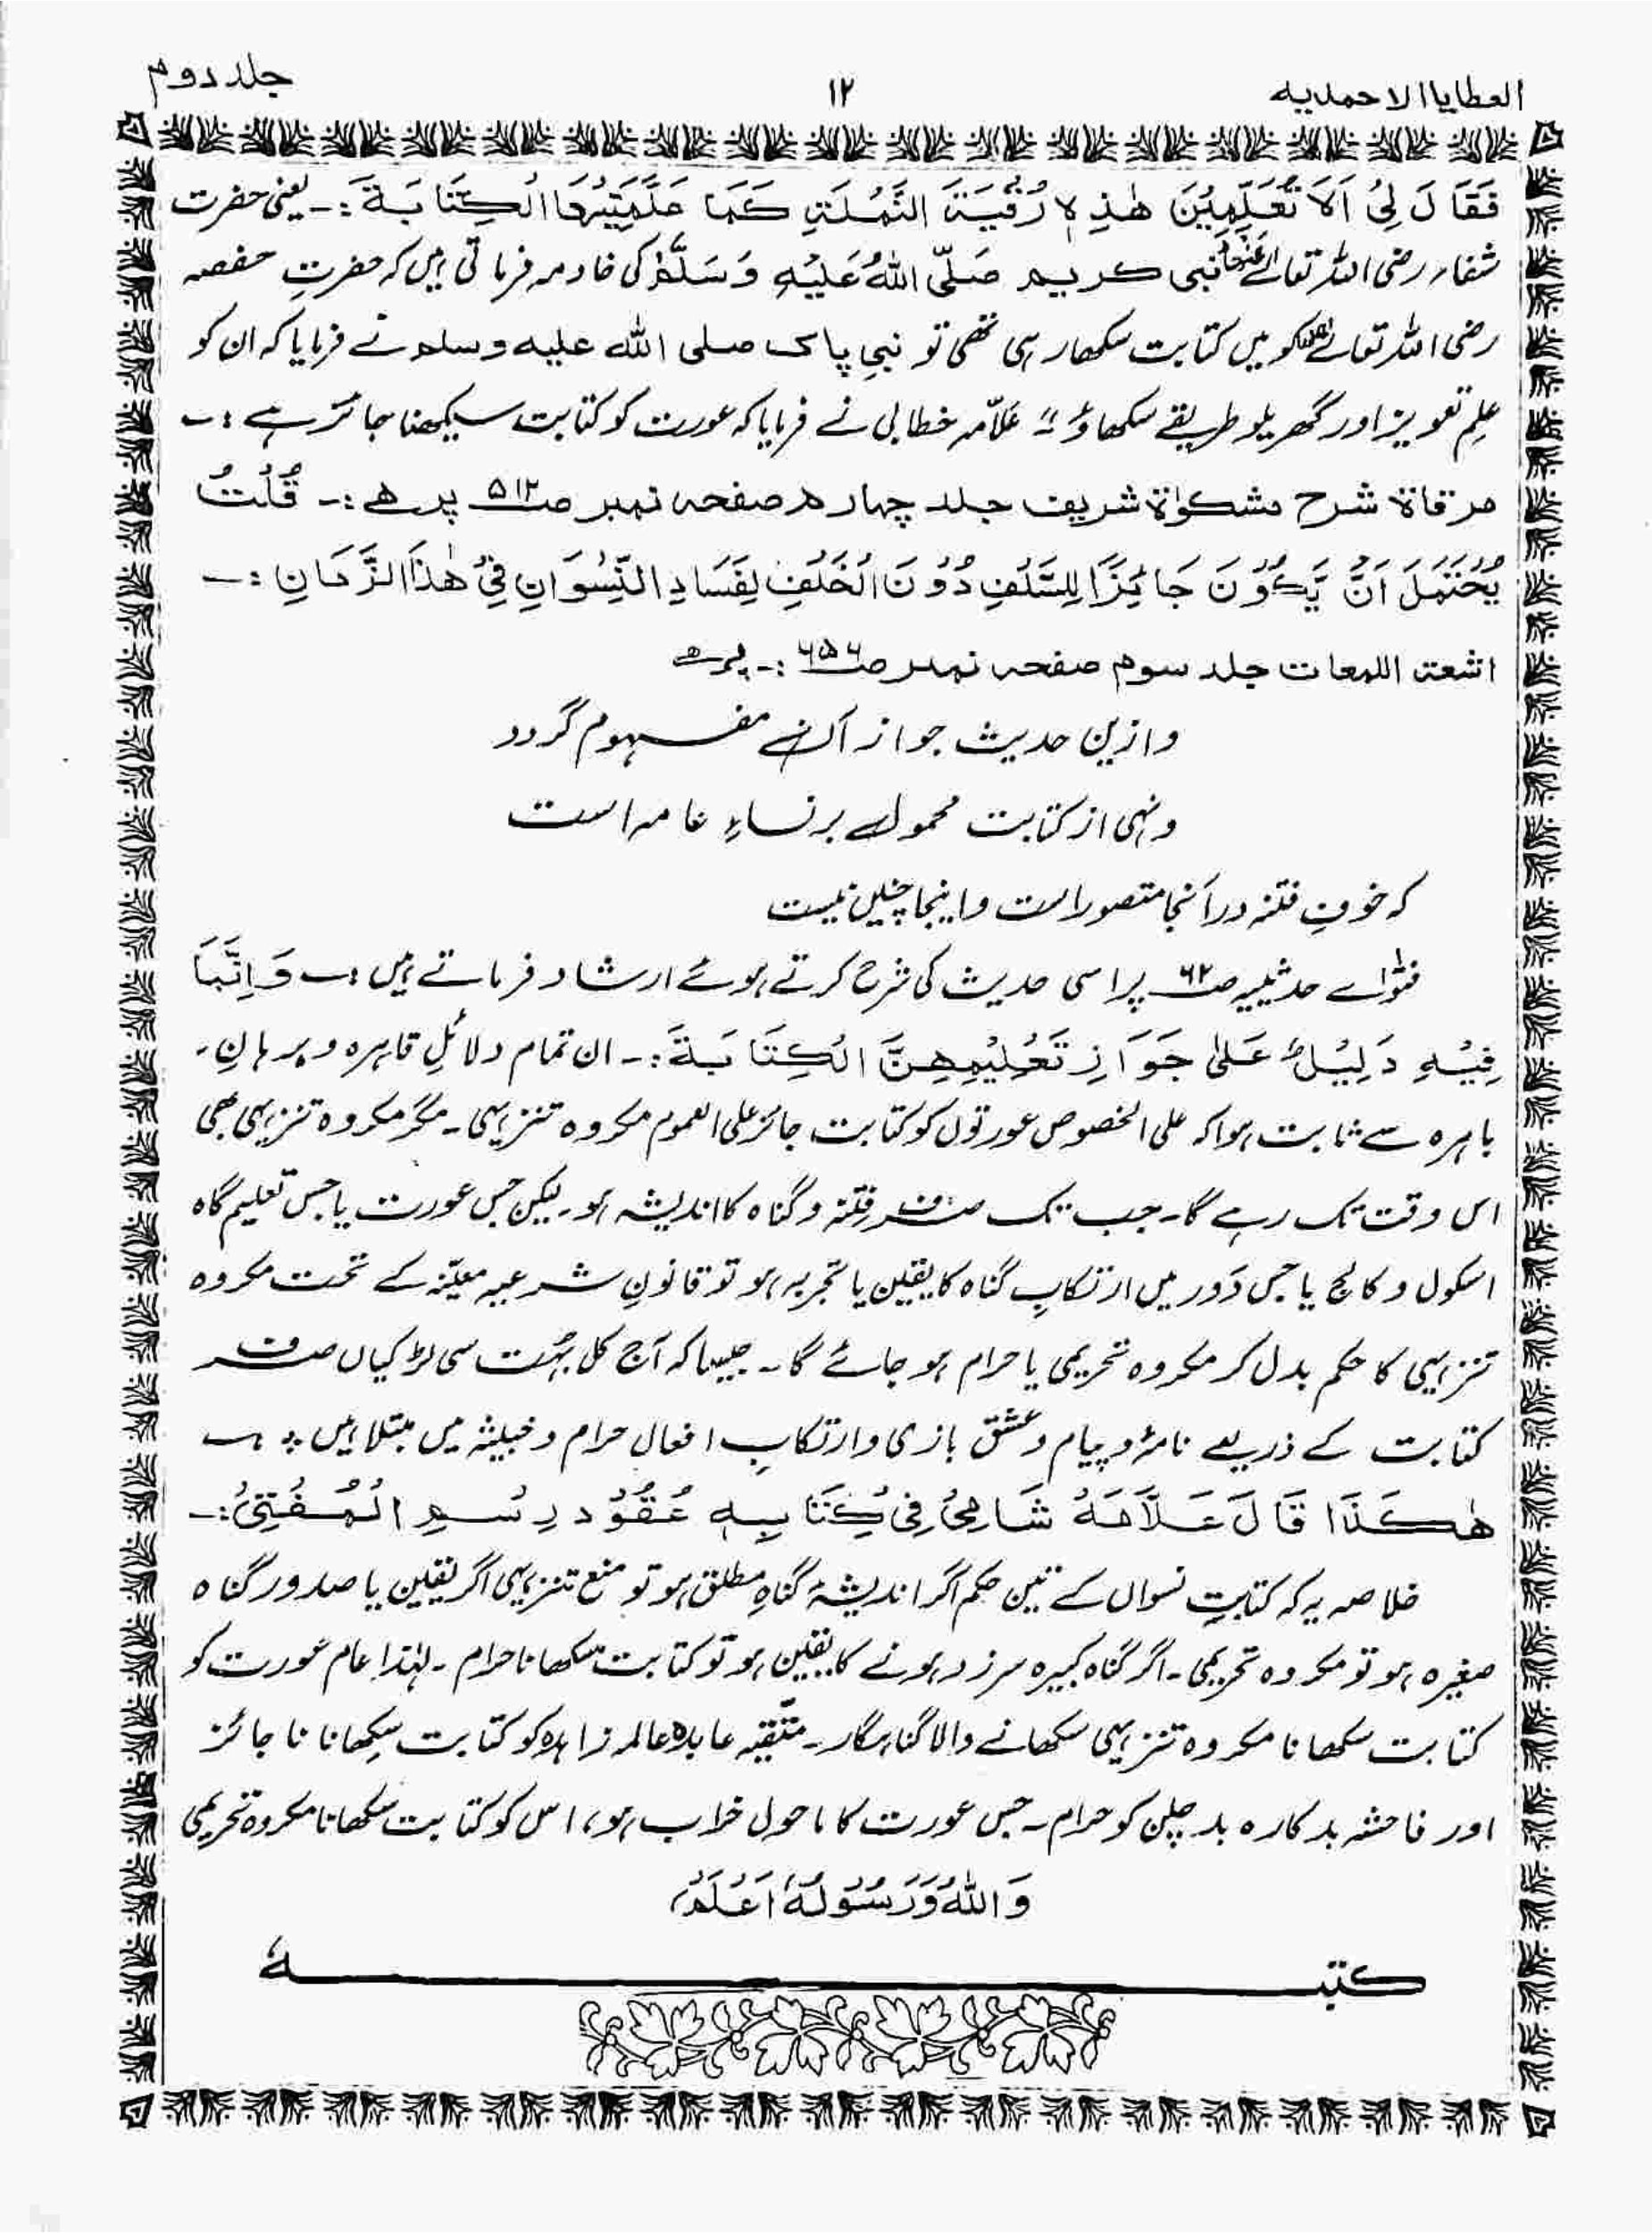 العطایا الاحمدیه
۱۲
جلد دوم
فَقَالَ لِیْ اَلَا تُعَلِّمِیْنَ هٰذِہٖ رُقْیَةَ النَّمْلَةِ کَمَا عَلَّمْتِیْهَا الْکِتَابَةَ:۔ یعنی حضرت
شفاء رضی اللہ تعالےٰ عنہا نبی کریم صَلَّی اللهُ عَلَیْہِ وَسَلَّمْ کی خادمہ فرماتی ہیں کہ حضرتِ حفصہ
رضی اللہ تعالےٰ عنہا کو میں کتابت سکھا رہی تھی تو نبیِ پاک صلی اللہ علیہ وسلم نے فرمایا کہ ان کو
علمِ تعویز اور گھریلو طریقے سکھاؤ ‟ علاّمہ خطابی نے فرمایا کہ عورت کو کتابت سیکھنا جائز ہے :۔
مرقاۃ شرح مشکوٰۃ شریف جلد چہارم صفحہ نمبر صـ۵۱۲ پر ھے :۔ قُلْتُ
یُحْتَمَلَ اَنْ یَّکُوْنَ جَائِزًا لِلسَّلَفِ دُوْنَ الْخَلَفِ لِفَسَادِ النِّسْوَانِ فِیْ هٰذَا الزَّمَانِ :۔
اشعۃ اللمعات جلد سوم صفحہ نمبر صـ۶۵۶ :۔ پر ہے
و ازین حدیث جواز آن مفہوم گردد
و نہی از کتابت محمول بر نساءِ عامہ است
کہ خوفِ فتنہ در آنجا متصور است و اینجا چنین نیست
فتوٰاے حدثییہ صـ۶۲ پر اسی حدیث کی شرح کرتے ہوئے ارشاد فرماتے ہیں :۔ وَاِنَّہَا
فِیْہِ دَلِیْلٌ عَلٰی جَوَازِ تَعْلِیْمِهِنَّ الْکِتَابَةَ :۔ ان تمام دلائلِ قاہرہ و برہانِ۔
باہرہ سے ثابت ہوا کہ علی الخصوص عورتوں کو کتابت جائز علی العموم مکروہ تنزیہی۔ مگر مکروہ تنزیہی بھی
اس وقت تک رہے گا۔ جب تک صرف فتنہ و گناہ کا اندیشہ ہو۔ لیکن جس عورت یا جس تعلیم گاہ
اسکول و کالج یا جس دَور میں ارتکابِ گناہ کا یقین یا تجربہ ہو تو قانونِ شرعیہ معیّنہ کے تحت مکروہ
تنزیہی کا حکم بدل کر مکروہ تحریمی یا حرام ہو جائے گا۔ جیسا کہ آج کل بہُت سی لڑکیاں صرف
کتابت کے ذریعے نامہ و پیام و عشق بازی و ارتکابِ افعال حرام و خبیثہ میں مبتلا ہیں :۔
هٰکَذَا قَالَ عَلَّامَهُ شَامِیْ فِیْ کِتَابِہٖ عُقُوْدِ رِسْمِ الْمُفْتِیْ:۔
خلاصہ یہ کہ کتابتِ نسواں کے تین حکم اگر اندیشۂ گناہِ مطلق ہو تو منع تنزیہی اگر یقین یا صدورِ گناہ
صغیرہ ہو تو مکروہ تحریمی۔ اگر گناہ کبیرہ سرزد ہونے کا یقین ہو تو کتابت سکھانا حرام۔ لہٰذا عام عورت کو
کتابت سکھانا مکروہ تنزیہی سکھانے والا گناہگار۔ متّقیہ عابدہ عالمہ زاہدہ کو کتابت سِکھانا نا جائز
اور فاحشہ بدکارہ بد چلن کو حرام۔ جس عورت کا ماحول خراب ہو، اس کو کتابت سکھانا مکروہ تحریمی
وَاللّٰهُ وَرَسُوْلُهٗ اَعْلَمُ،
کتبہٗ